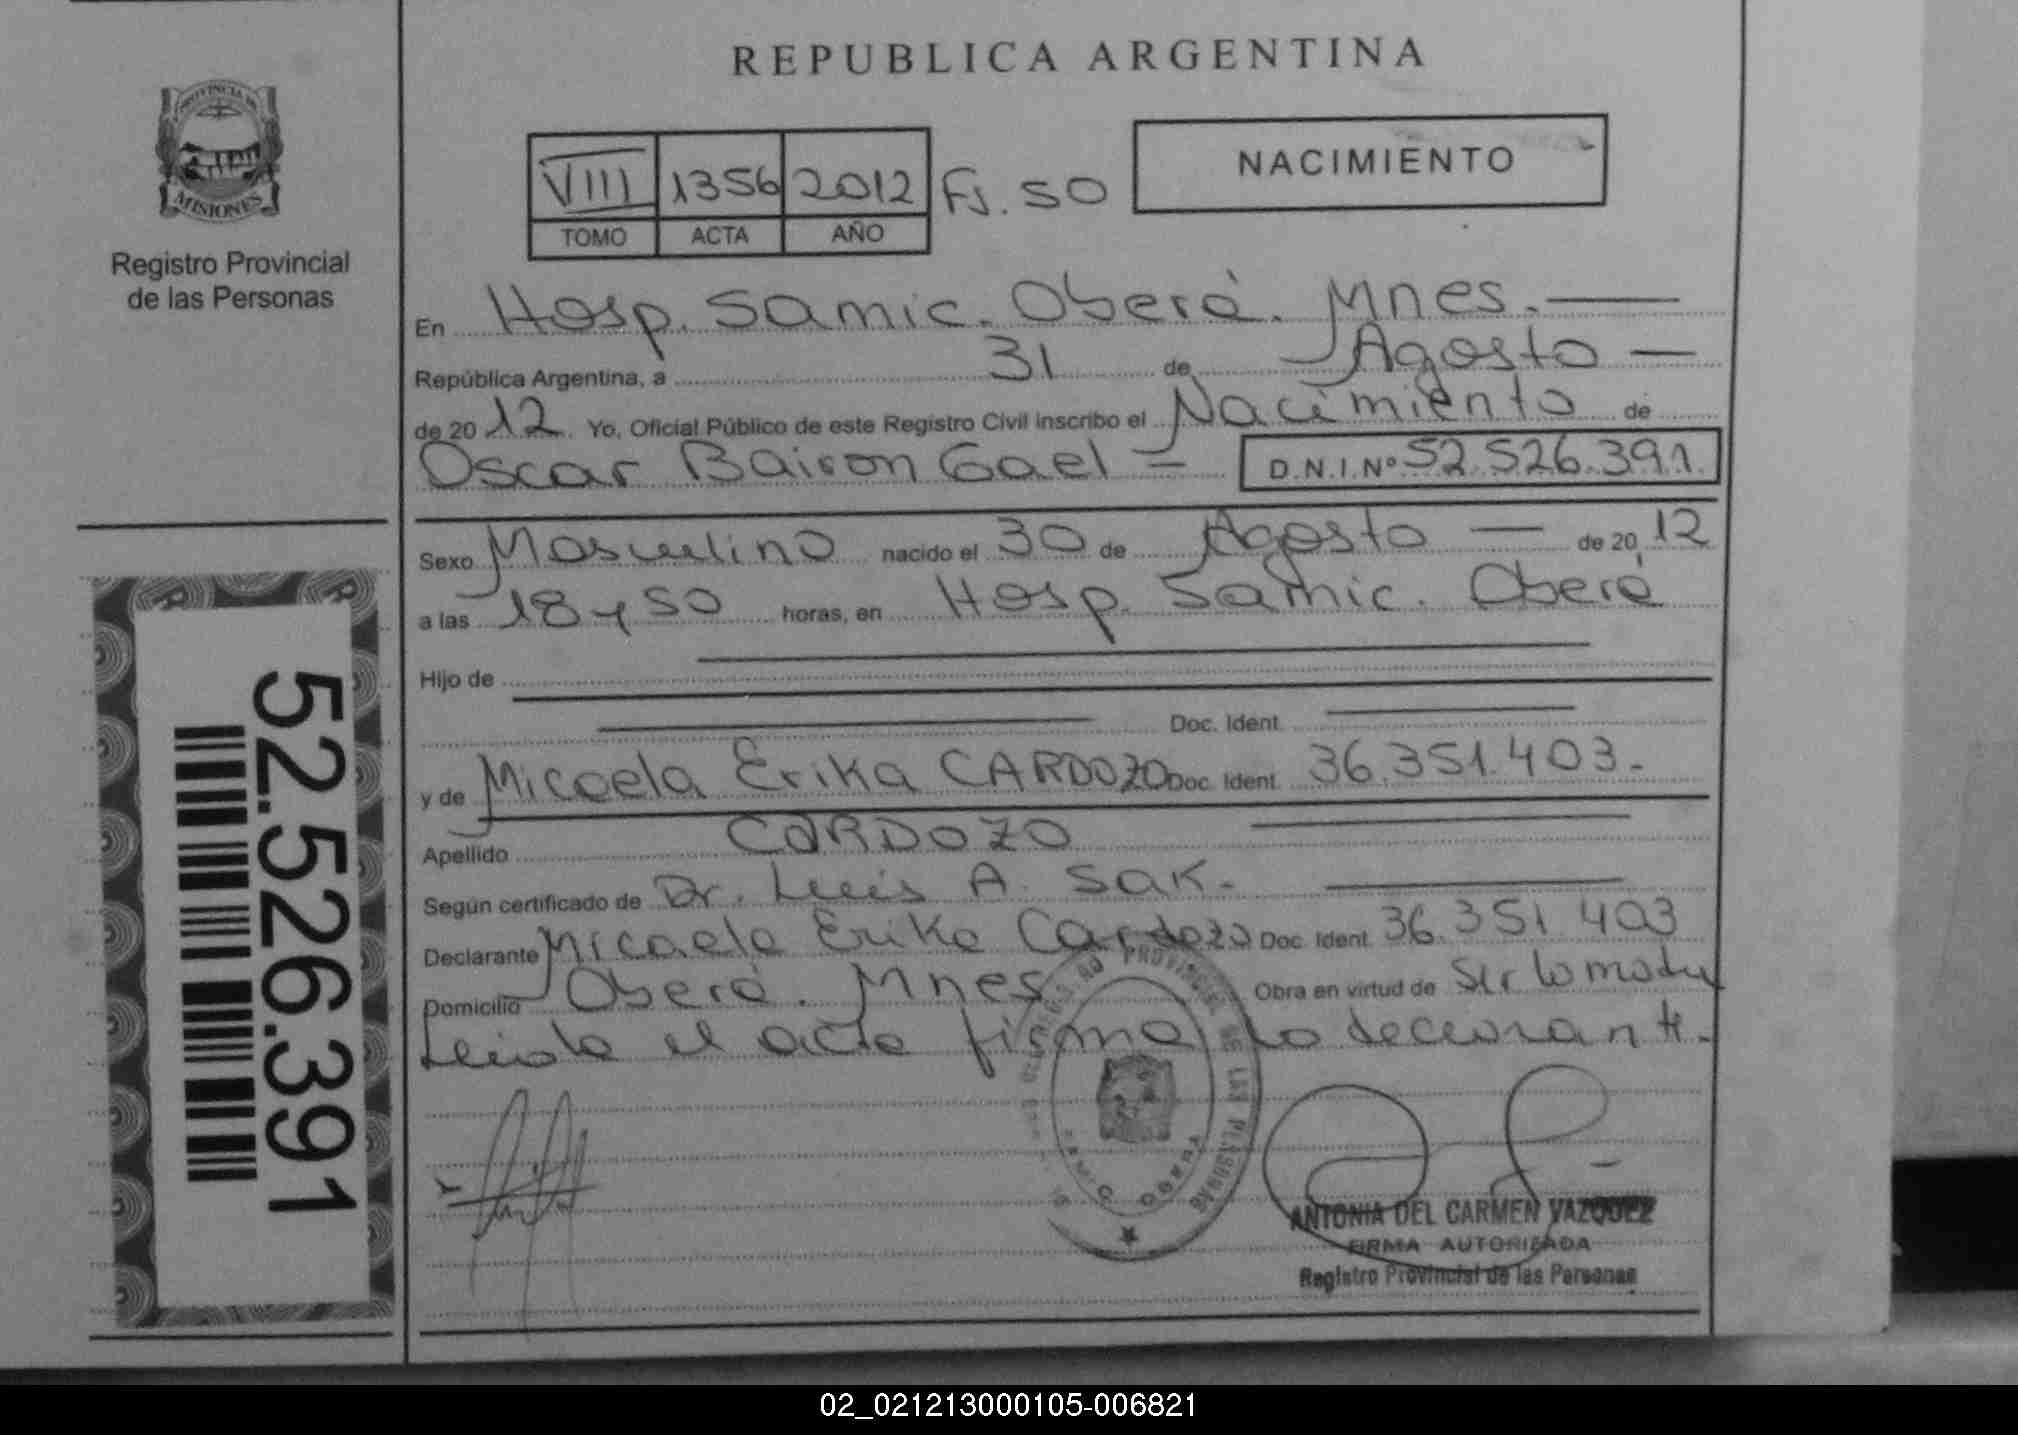 REPUBLICA ARGENTINA
PROVINCIA DE
MISIONES
Registro Provincial
de las Personas
VIII 1356 2012 Fs. 50
TOMO ACTA AÑO
NACIMIENTO
En Hosp. Samic. Oberá. Mnes.
República Argentina, a 31 de Agosto
de 2012 Yo, Oficial Público de este Registro Civil inscribo el Nacimiento de
Oscar Bairon Gael D.N.I.Nº 52.526.391
Sexo Masculino nacido el 30 de Agosto de 2012
a las 18 y 50 horas, en Hosp. Samic. Oberá
Hijo de
Doc. Ident.
y de Micaela Erika CARDOZO Doc. Ident. 36.351.403.
Apellido CARDOZO
Según certificado de Dr. Luis A. Sak.
Declarante Micaela Erika Cardozo Doc. Ident. 36.351.403
Domicilio Oberá. Mnes Obra en virtud de Ser la madre
Leida el acta firma la declarante.
PROVINCIAL DE LAS PERSONAS
OBERA
ANTONIA DEL CARMEN VAZQUEZ
FIRMA AUTORIZADA
Registro Provincial de las Personas
52.526.391
02_021213000105-006821